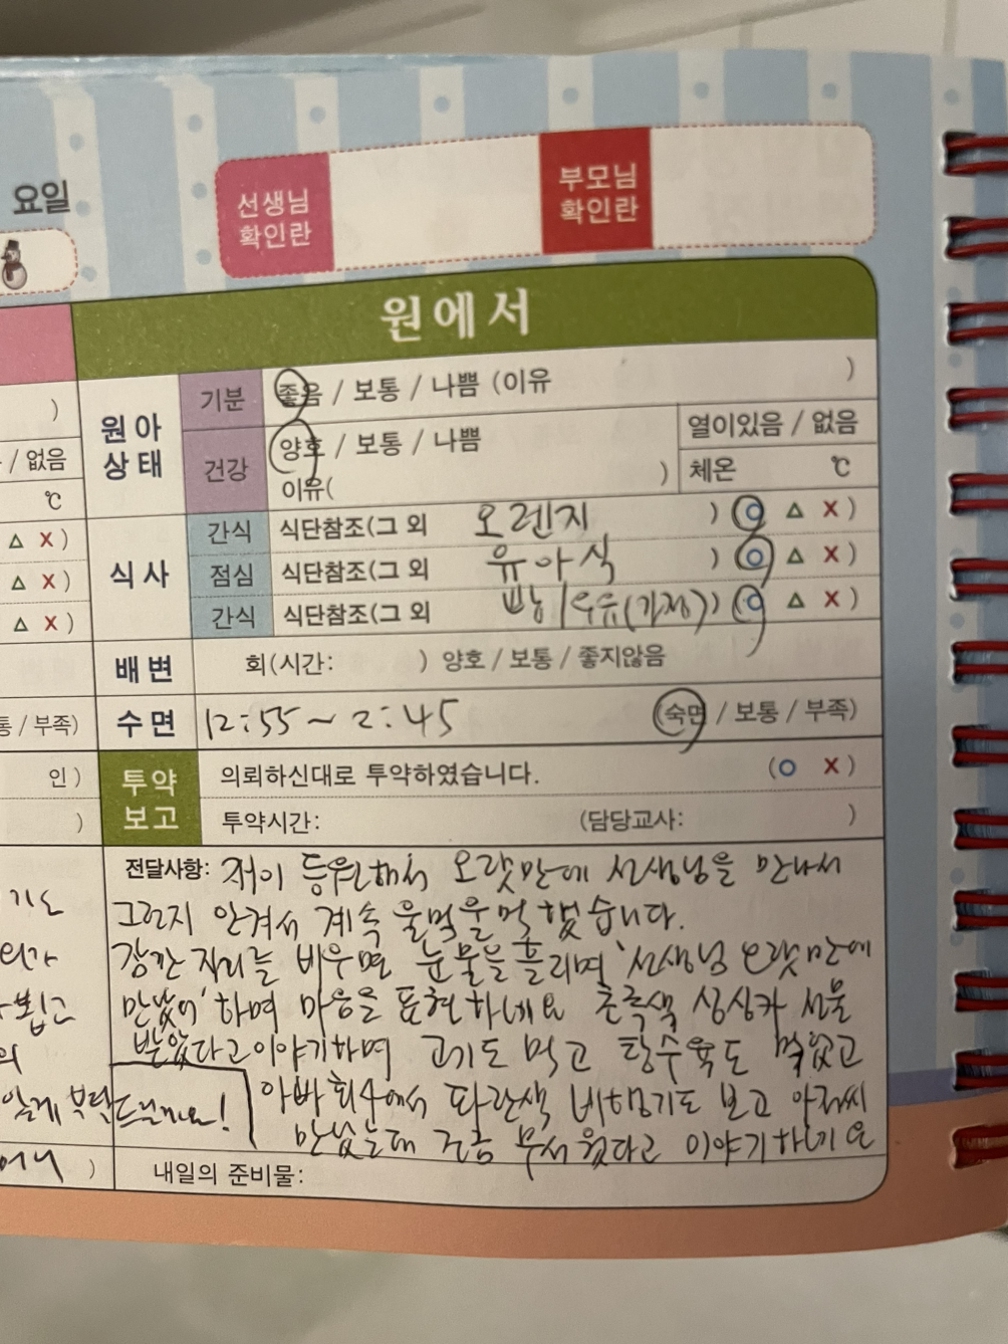 요일
선생님
확인란
부모님
확인란
원에서
원아
상태
기분
좋음 / 보통 / 나쁨 (이유 )
건강
양호 / 보통 / 나쁨
이유( )
열이있음 / 없음
체온 ℃
)
/ 없음
℃
△ X )
△ X )
△ X )
식사
간식 식단참조(그 외 오렌지 ) O △ X )
점심 식단참조(그 외 유아식 ) O △ X )
간식 식단참조(그 외 빵/우유(가정)) O △ X )
배변 회(시간: ) 양호 / 보통 / 좋지않음
통 / 부족)
수면 12:55 ~ 2:45 (숙면 / 보통 / 부족)
인 )
)
투약
보고
의뢰하신대로 투약하였습니다. (O X)
투약시간: (담당교사: )
전달사항: 등원해서 오랫만에 선생님을 만나서
그런지 안겨서 계속 울먹울먹 했습니다.
잠깐 자리를 비우면 눈물을 흘리며 '선생님 오랫만에
만났어' 하며 마음을 표현하네요 초록색 싱싱카 선물
받았다고 이야기하며 고기도 먹고 탕수육도 먹었고
아빠 회사에서 파란색 비행기도 보고 아저씨
만났는데 조금 무서웠다고 이야기하네요
기도
뽑고
있게 부탁드릴게요!
)
내일의 준비물: